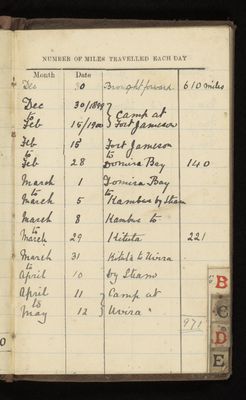 NUMBER OF MILES TRAVELLED EACH DAY
Month Date
Dec 30 Brought forward 610 miles
Dec 30/1899
to } Camp at
Feb 15/1900 Fort Jameson
Feb 15 Fort Jameson
to to
Feb 28 Domira Bay 140
March 1 Domira Bay
to to
March 5 Kambwe by steam
March 8 Kambwe to
to
March 29 Kituta 221
March 31 Kituta to Uvira
to
April 10 by Steam
April 11 } Camp at
to
May 12 Uvira "
971
B
C
D
E